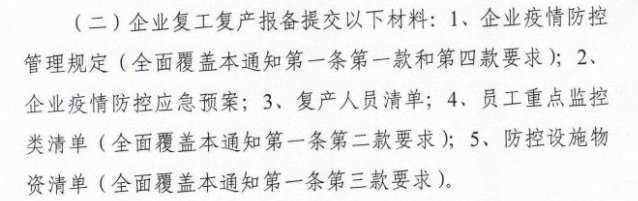 （二）企业复工复产报备提交以下材料：1、企业疫情防控
管理规定（全面覆盖本通知第一条第一款和第四款要求）；2、
企业疫情防控应急预案；3、复产人员清单；4、员工重点监控
类清单（全面覆盖本通知第一条第二款要求）；5、防控设施物
资清单（全面覆盖本通知第一条第三款要求）。